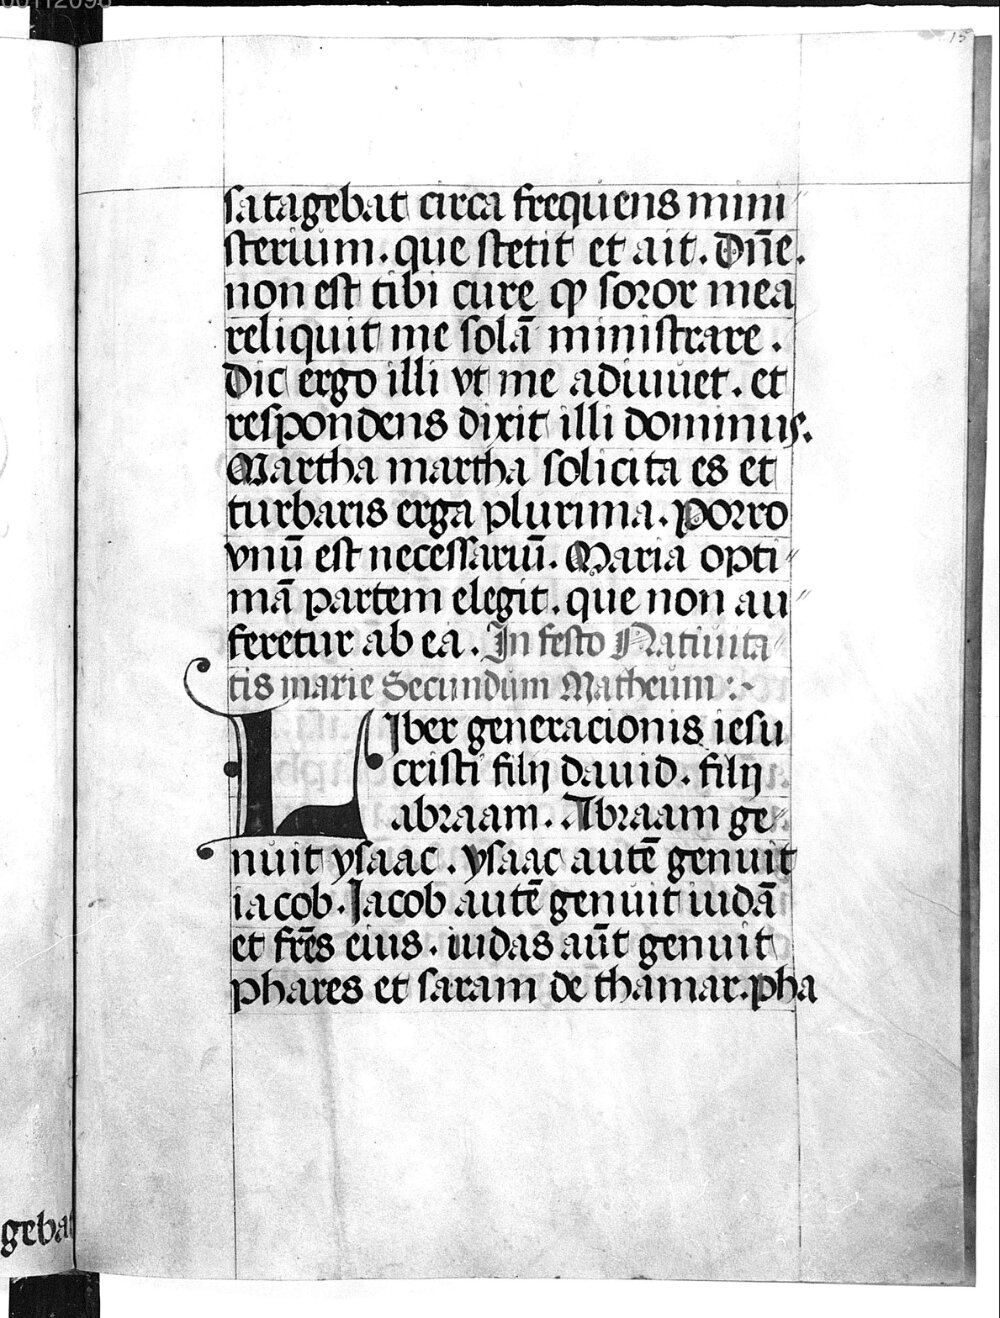 15
satagebat circa frequens mini
sterium. que stetit et ait. Dñe.
non est tibi cure ꝙ soror mea
reliquit me solā ministrare.
Dic ergo illi vt me adiuuet. et
respondens dixit illi dominus.
Martha martha solicita es et
turbaris erga plurima. Porro
vnū est necessariū. Maria opti
mā partem elegit. que non au
feretur ab ea. In festo Natiuita
tis marie Secundum Matheum :-
LIber generacionis iesu
cristi filij dauid. filij
abraam. Abraam ge
nuit ysaac. ysaac autē genuit
iacob. Jacob autē genuit iudā
et frēs eius. iudas aūt genuit
phares et saram de thamar. pha
gebat